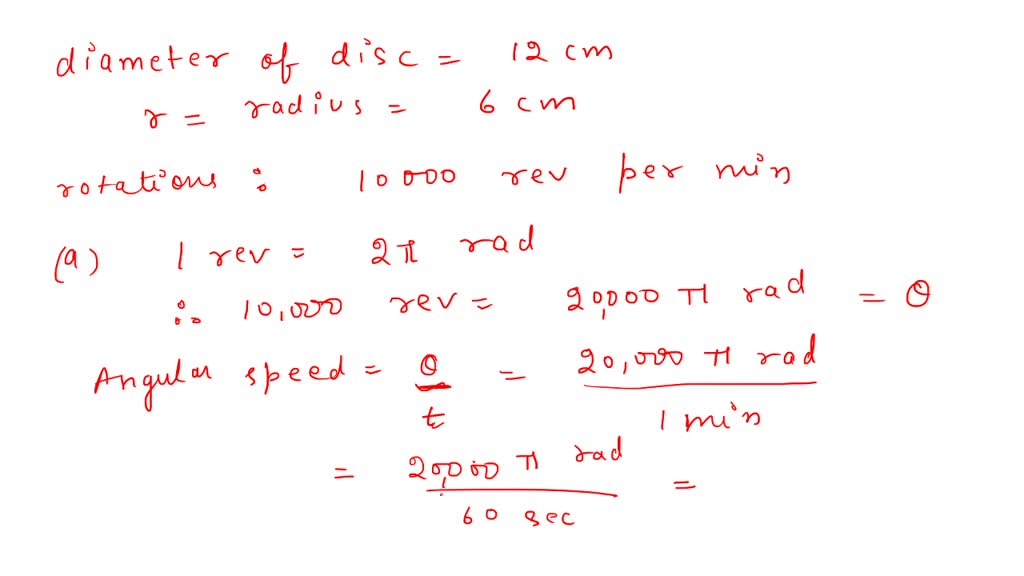 diameter of disc = 12 cm
r = radius = 6 cm
rotations : 10000 rev per min
(a) 1 rev = 2π rad
∴ 10,000 rev = 20,000 π rad = θ
Angular speed = θ/t = 20,000 π rad / 1 min
= 20,000 π rad / 60 sec =